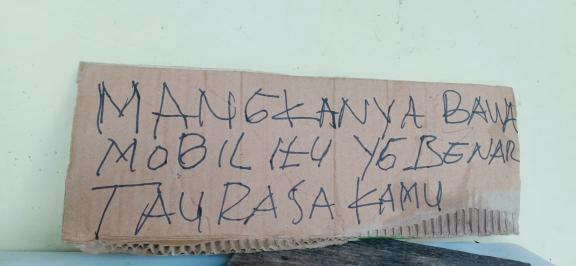 MANGKANYA BAWA
MOBIL ITU YG BENAR
TAU RASA KAMU